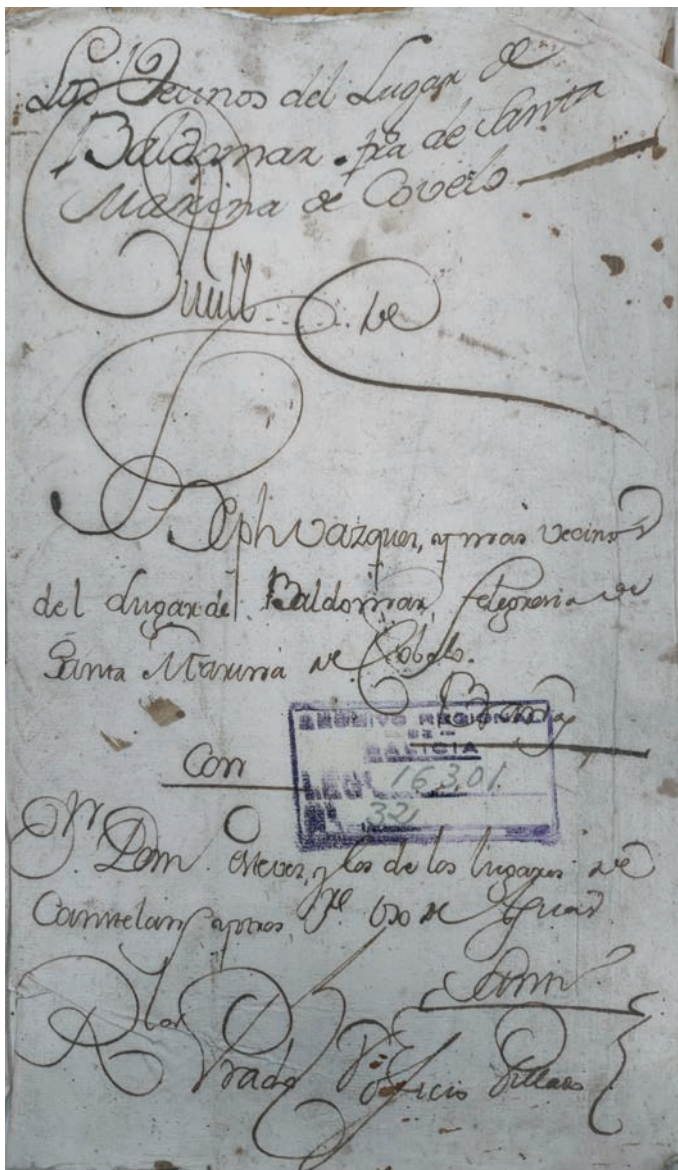 Los Vecinos del Lugar de
Baldomar. fra de Santa
Marina de Covelo
de
Jph Vazquez, y mas vecinos
del Lugar de Baldomar, felegresia de
Santa Marina de Cobelo.
Con
ARCHIVO REGIONAL
DE
GALICIA
LEG. 16.301
Nº 32
Dom. Estevez, y los de los lugares de
y otros, sre. uso de Aguas
Prado Oficio Pillado